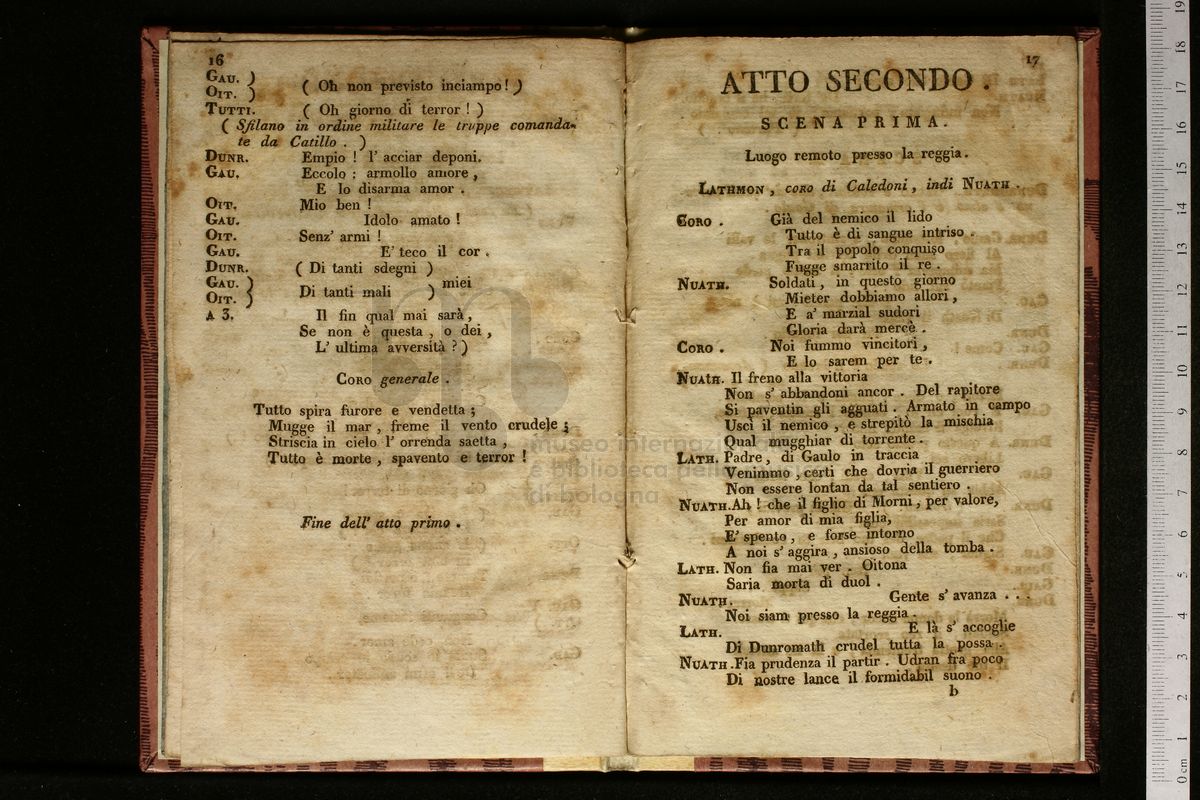 16
GAU. )
OIT. ) ( Oh non previsto inciampo! )
TUTTI. ( Oh giorno di terror ! )
( Sfilano in ordine militare le truppe comanda-
te da Catillo . )
DUNR. Empio ! l' acciar deponi.
GAU. Eccolo : armollo amore ,
E lo disarma amor .
OIT. Mio ben !
GAU. Idolo amato !
OIT. Senz' armi !
GAU. E' teco il cor .
DUNR. ( Di tanti sdegni )
GAU. } miei
OIT. } Di tanti mali )
A 3. Il fin qual mai sarà ,
Se non è questa , o dei ,
L' ultima avversità ? )
CORO generale .
Tutto spira furore e vendetta ;
Mugge il mar , freme il vento crudele ;
Striscia in cielo l' orrenda saetta ,
Tutto è morte , spavento e terror !
Fine dell' atto primo .
17
ATTO SECONDO .
SCENA PRIMA.
Luogo remoto presso la reggia.
LATHMON , CORO di Caledoni , indi NUATH .
CORO . Già del nemico il lido
Tutto è di sangue intriso .
Tra il popolo conquiso
Fugge smarrito il re .
NUATH. Soldati , in questo giorno
Mieter dobbiamo allori ,
E a' marzial sudori
Gloria darà mercè .
CORO . Noi fummo vincitori ,
E lo sarem per te .
NUATH. Il freno alla vittoria
Non s' abbandoni ancor . Del rapitore
Si paventin gli agguati . Armato in campo
Uscì il nemico , e strepitò la mischia
Qual mugghiar di torrente .
LATH. Padre , di Gaulo in traccia
Venimmo , certi che dovria il guerriero
Non essere lontan da tal sentiero .
NUATH. Ah ! che il figlio di Morni , per valore,
Per amor di mia figlia,
E' spento , e forse intorno
A noi s' aggira , ansioso della tomba .
LATH. Non fia mai ver . Oitona
Saria morta di duol .
NUATH. Gente s' avanza . . .
Noi siam presso la reggia .
LATH. E là s' accoglie
Di Dunromath crudel tutta la possa .
NUATH. Fia prudenza il partir . Udran fra poco
Di nostre lance il formidabil suono .
b
museo internazionale
e biblioteca della
di bologna
0 cm 1 2 3 4 5 6 7 8 9 10 11 12 13 14 15 16 17 18 19